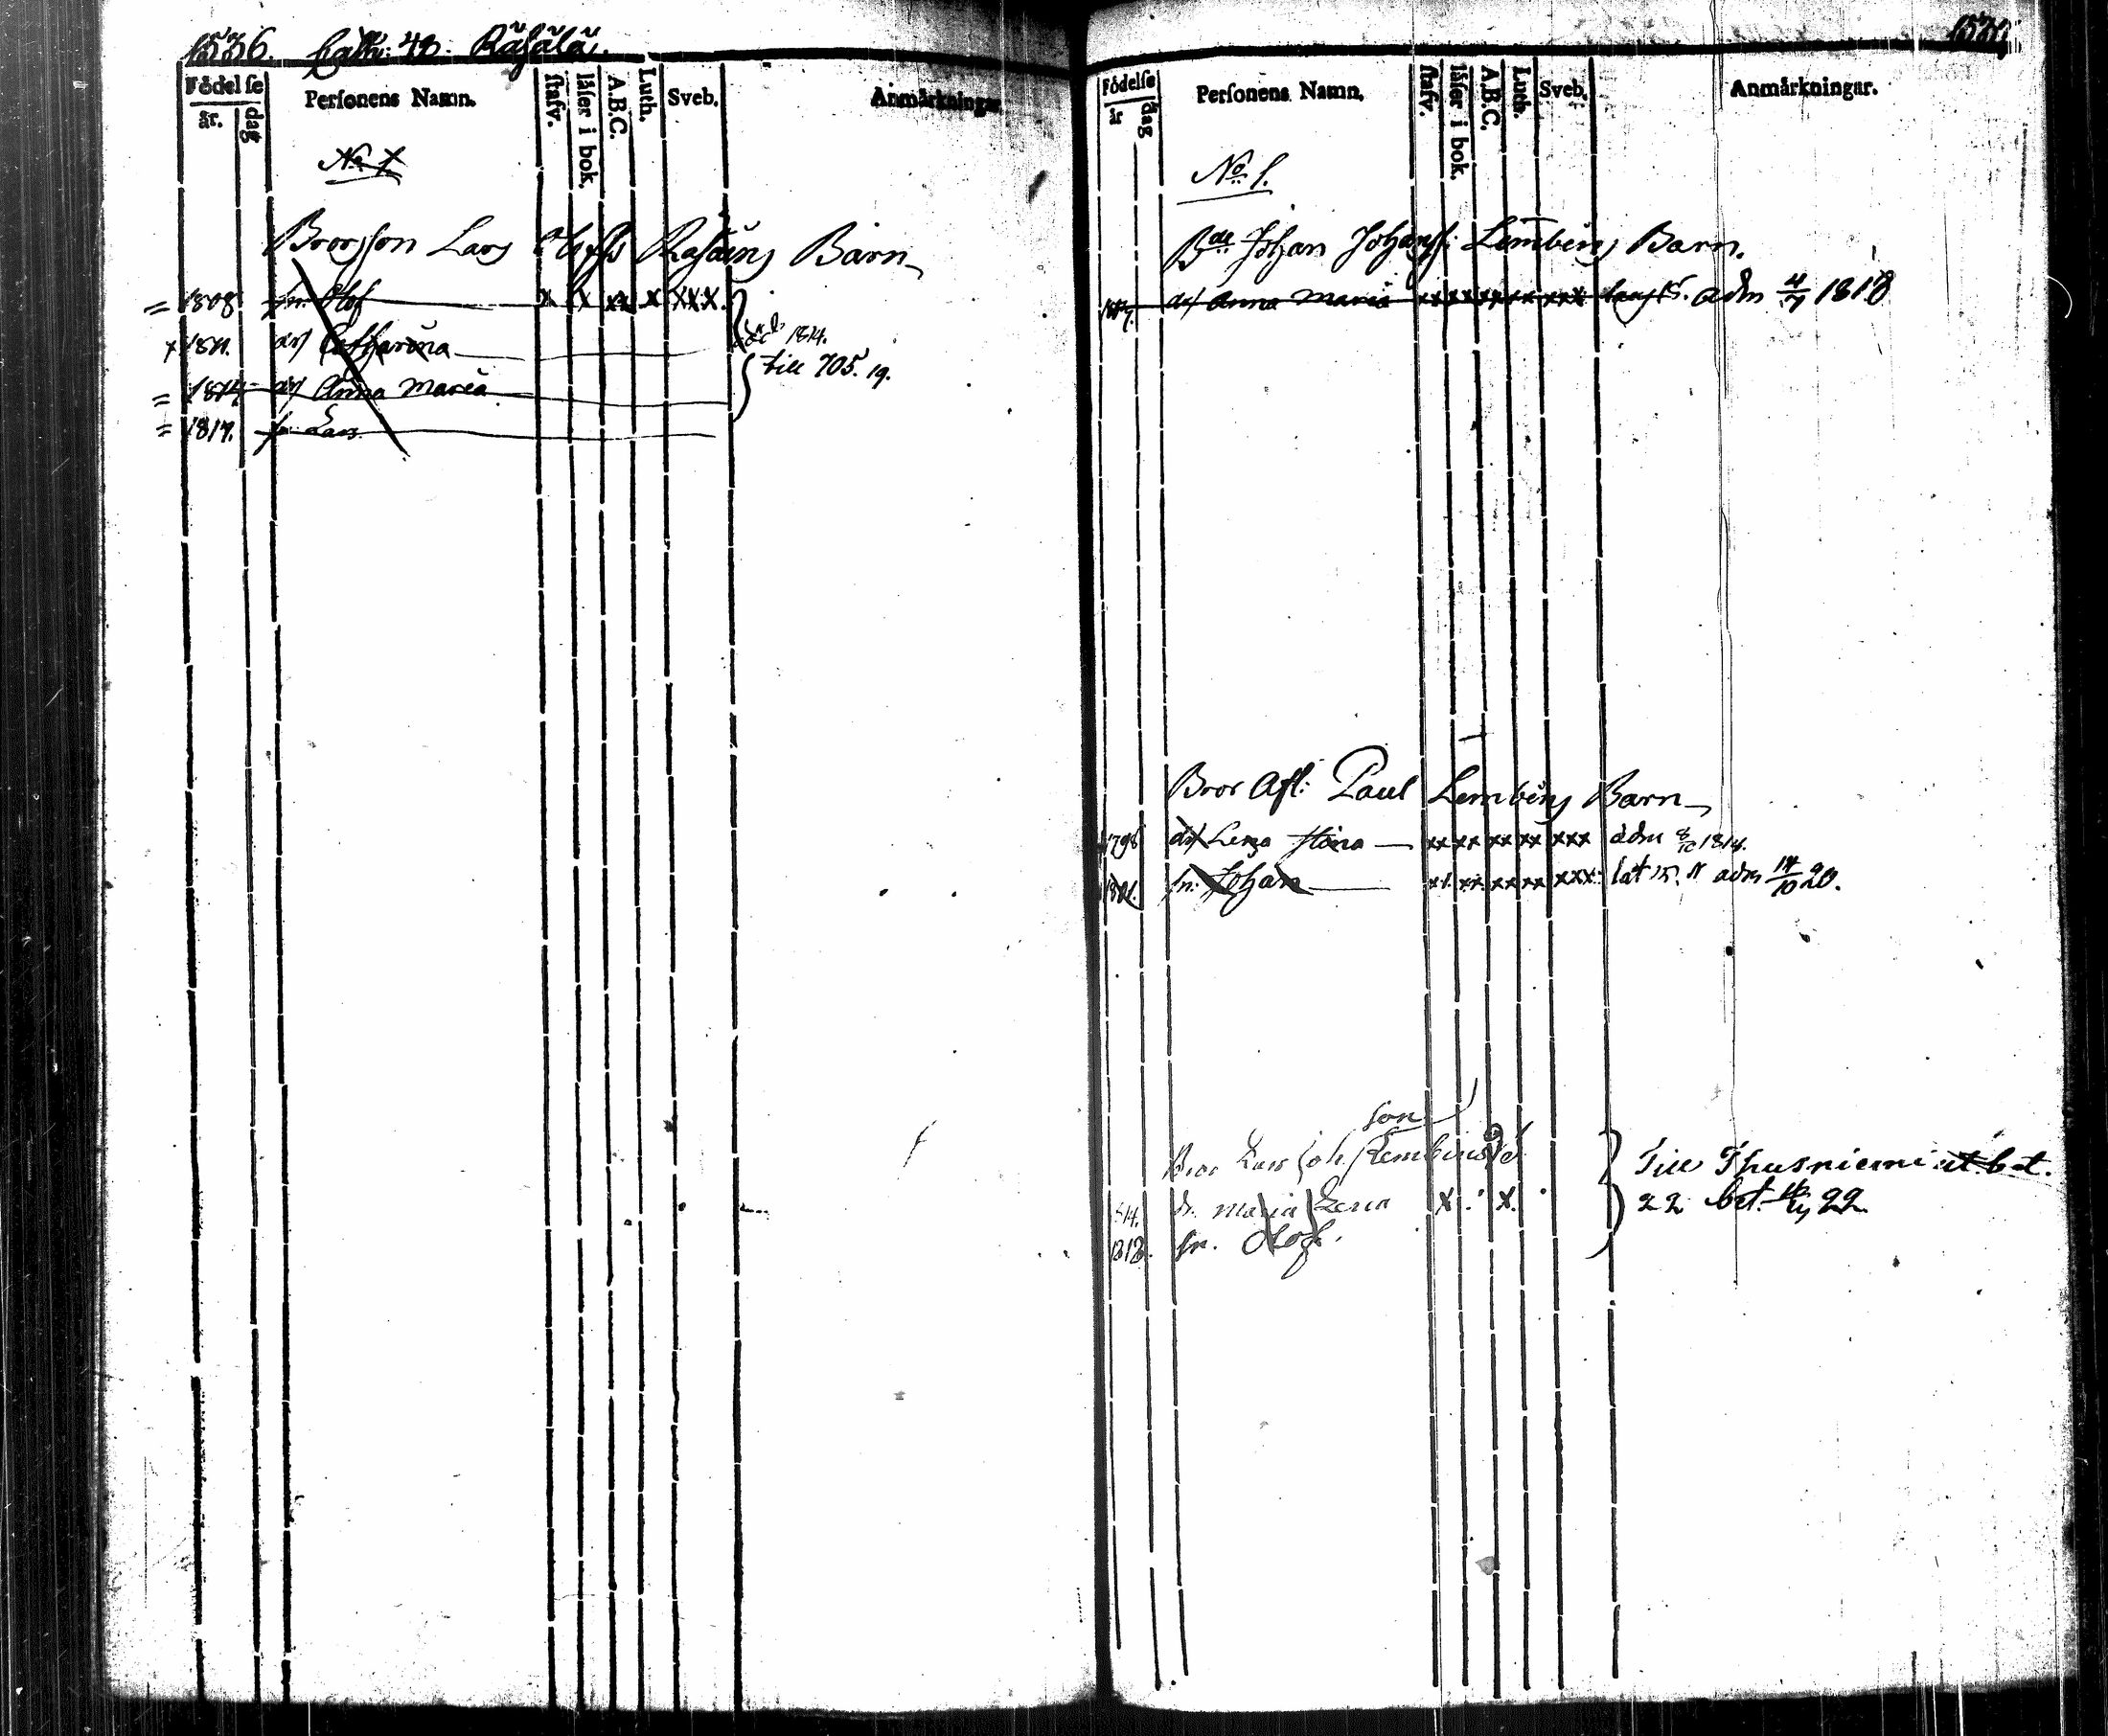 1536. Cath: 48. Räsälä.
Födelse
år. dag
Personens Namn. stafv. läser i bok. A.B.C. Luth. Sveb. Anmärkningar
No 1.
Brorsson Lars Olofss Räsäins Barn
1808 sn: Olof x x xx x xxx.
1811. dr Catharina 1814.
till 705. 19.
1814 dr Anna Maria
1817. sn: Lars
Födelse
år dag
Personens Namn. stafv. läser i bok. A.B.C. Luth. Sveb. Anmärkningar.
No 1.
Bde Johan Johanss: Lembeins Barn.
dr Anna Maria xx xx xx xx xxx adm 4/7 1818
Bror Afl: Paul Lembeins Barn
1798 dr Lena Stina xx xx xx xx xxx adm 8/10 1814.
1801. sn: Johan xx xx xx xx xxx adm 14/10 20.
son
Bror Lars Joh. Lembeins
Till Thusniemi
dr. Maria Lena x x 22 bet. 22
1818. sn. Olof.